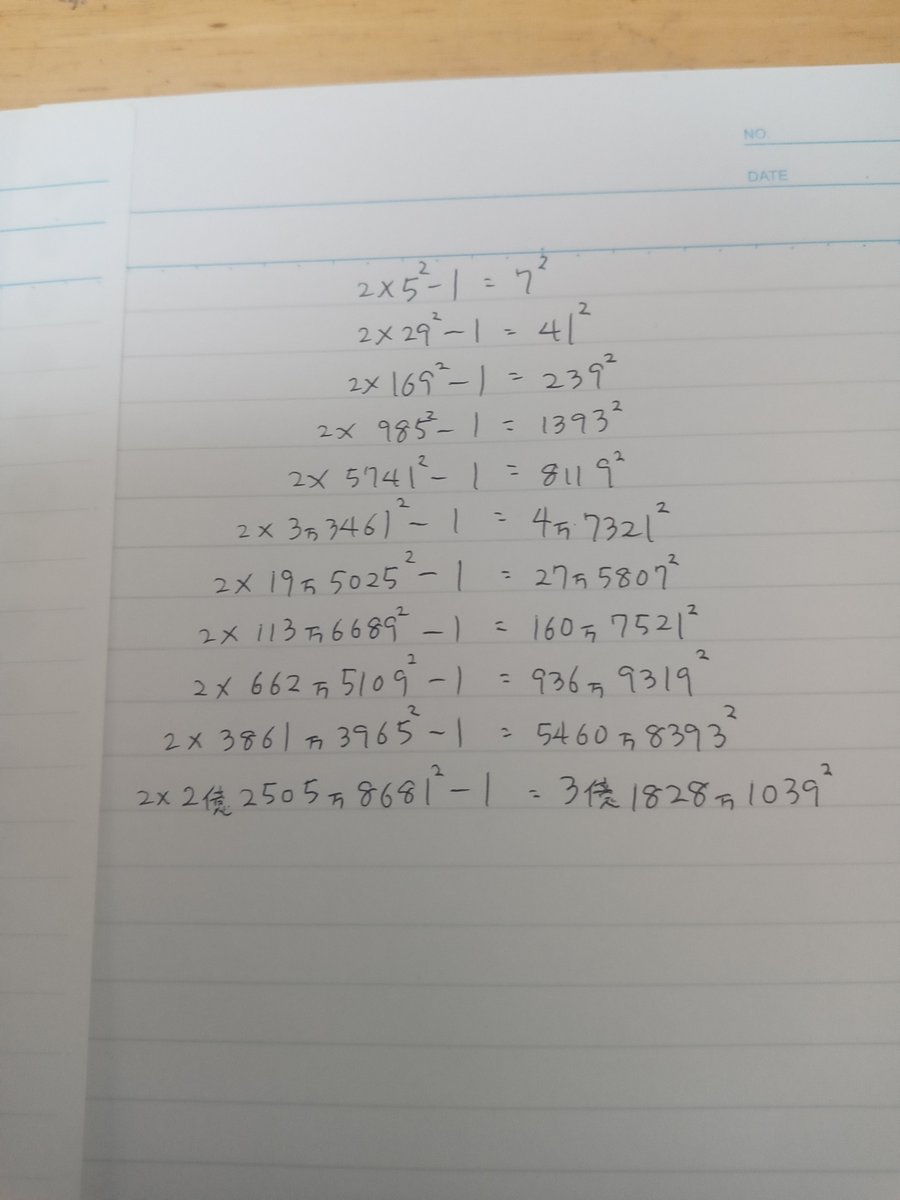 NO.
DATE
2×5²-1 = 7²
2×29²-1 = 41²
2×169²-1 = 239²
2× 985²-1 = 1393²
2× 5741²-1 = 8119²
2×3万3461²-1 = 4万7321²
2×19万5025²-1 = 27万5807²
2×113万6689²-1 = 160万7521²
2×662万5109²-1 = 936万9319²
2×3861万3965²-1 = 5460万8393²
2×2億2505万8681²-1 = 3億1828万1039²